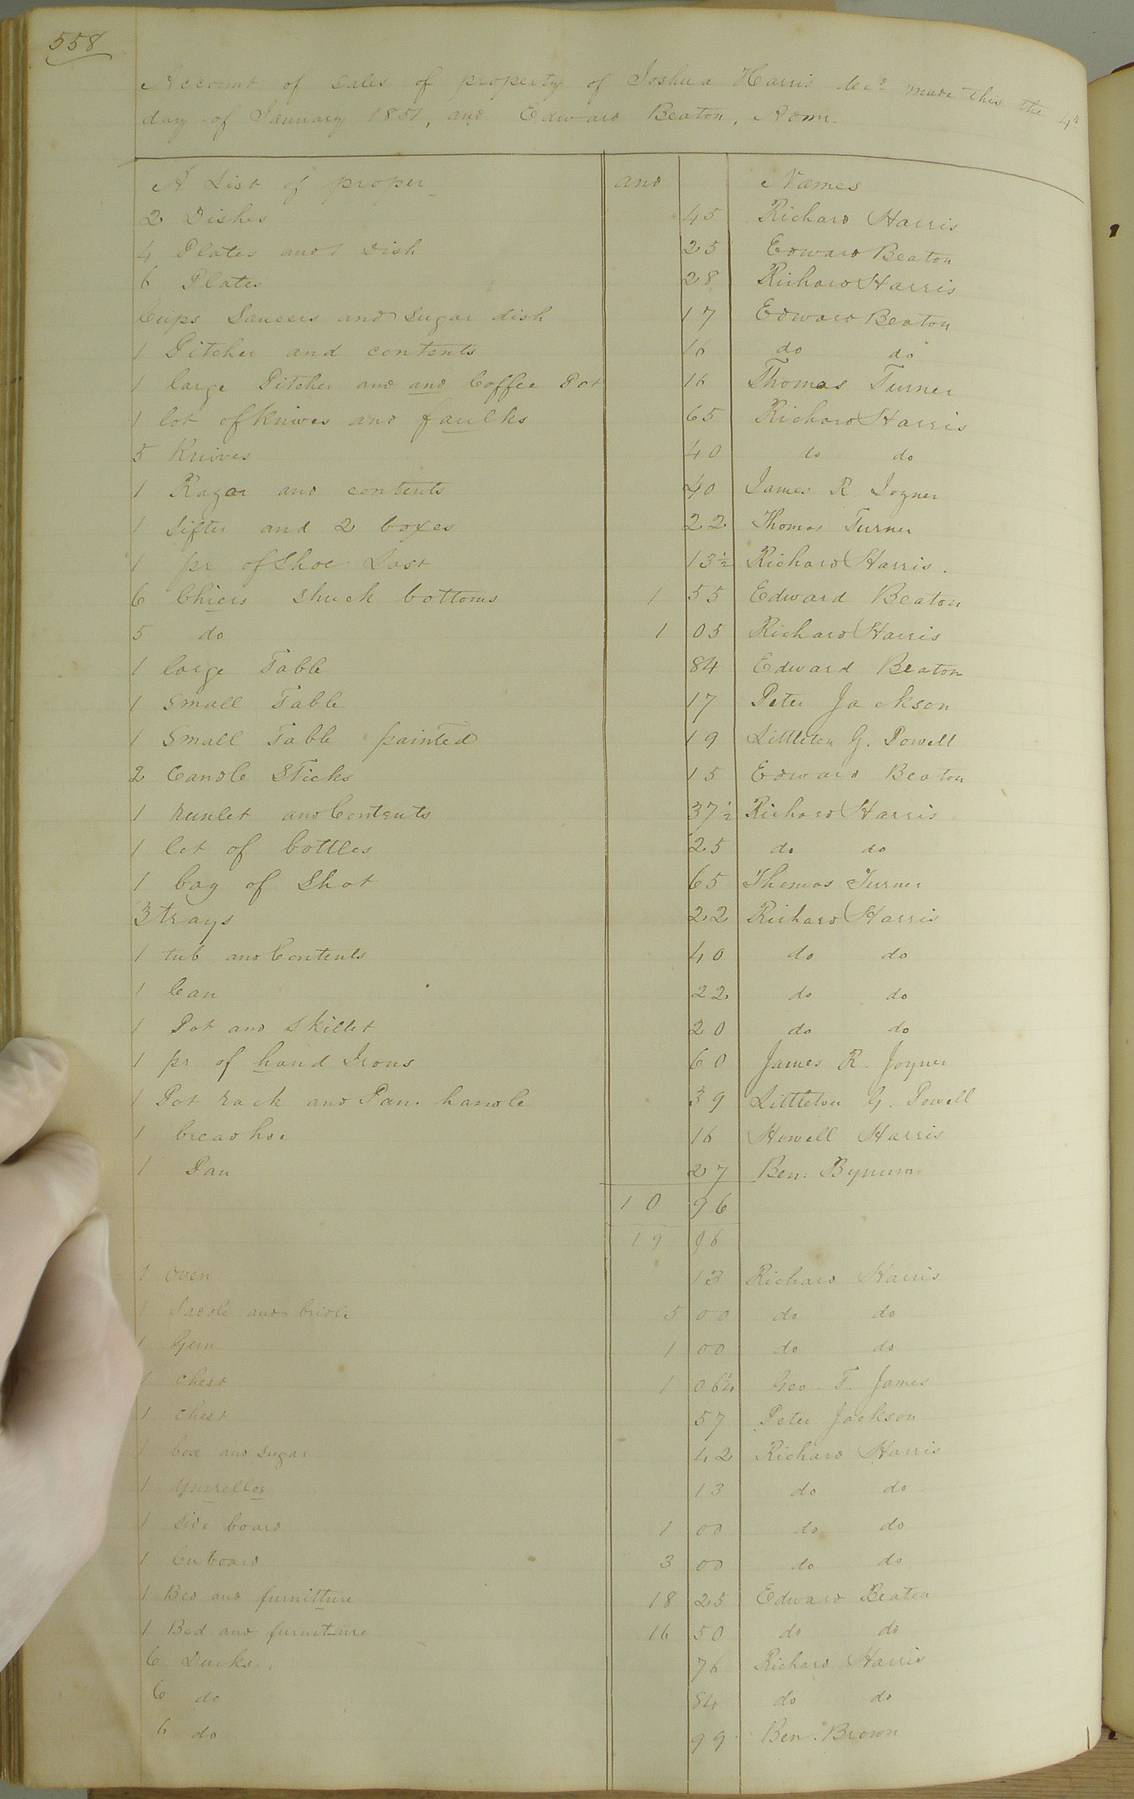 558
Account of Sales of property of Joshua Harris decd made this the 4th
day of January 1851, and Edward Beaton, Admr.
A List of proper and Names
2 Dishes 45 Richard Harris
4 Plates and 1 Dish 25 Edward Beaton
6 Plates 28 Richard Harris
Cups Saucers and Sugar dish 17 Edward Beaton
1 Pitcher and contents 16 do do
1 large Pitcher and and Coffee Pot 16 Thomas Turner
1 lot of Knives and faulks 65 Richard Harris
5 Knives 40 do do
1 Razor and contents 40 James R Joyner
1 Sifter and 2 boxes 22 Thomas Turner
1 pr of Shoe Last 13½ Richard Harris.
6 Chiers Shuck bottoms 1 55 Edward Beaton
5 do 1 05 Richard Harris
1 large Table 84 Edward Beaton
1 Small Table 17 Peter Jackson
1 Small Table painted 19 Littleton G. Powell
2 Candle Sticks 15 Edward Beaton
1 runlet and Contents 37½ Richard Harris
1 lot of bottles 25 do do
1 bag of Shot 65 Thomas Turner
3 trays 22 Richard Harris
1 tub and Contents 40 do do
1 Can 22 do do
1 Pot and Skillet 20 do do
1 pr of hand Irons 60 James R. Joyner
1 Pot rack and Pan handle 39 Littleton G. Powell
1 breadhoe 16 Howell Harris
1 Pan 27 Ben. Bynum
10 96
19 96
1 oven 13 Richard Harris
1 Saddle and bridle 5 00 do do
1 Gun 1 00 do do
1 Chest 1 06¼ Geo. T. James
1 Chest 57 Peter Jackson
1 box and Sugar 42 Richard Harris
1 13 do do
1 Side board 1 00 do do
1 Cuboard 3 00 do do
1 Bed and furnitture 18 25 Edward Beaton
1 Bed and furniture 16 50 do do
6 Ducks. 76 Richard Harris
6 do 84 do do
6 do 99 Ben. Brown